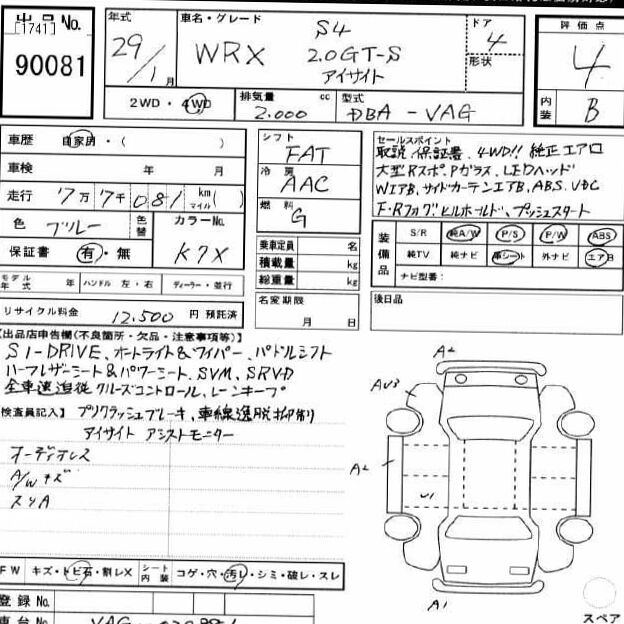 出品No. [1741] 90081
年式 29/1月
車名・グレード WRX S4 2.0GT-S アイサイト
ドア 4 形状
評価点 4
内装 B
2WD・4WD 排気量 2.000 cc 型式 DBA-VAG
車歴 自家用・(
車検 年 月
走行 7万7千081 km(マイル)
色 ブルー 色替 カラーNo. K7X
保証書 有・無
モデル年式 年 ハンドル 左・右 ディーラー・並行
リサイクル料金 12,500 円 預託済
シフト FAT
冷房 AAC
燃料 G
乗車定員 名
積載量 kg
総重量 kg
名変期限
月 日
セールスポイント
取説 保証書、4WD!! 純正エアロ
大型Rスポ、Pガラス、LEDヘッド
WエアB、サイドカーテンエアB、ABS、VDC
F・Rフォグ、ヒルホールド、プッシュスタート
装備品 S/R 純A/W P/S P/W ABS
純TV 純ナビ 革シート 外ナビ エアB
ナビ型番:
後日品
【出品店申告欄(不良箇所・欠品・注意事項等)】
SI-DRIVE、オートライト&ワイパー、パドルシフト
ハーフレザーシート&パワーシート、SVM、SRVD
全車速追従クルーズコントロール、レーンキープ
検査員記入】 プリクラッシュブレーキ、車線逸脱抑制
アイサイト アシストモニター
オーディオレス
A/Wキズ
スリA
A2
AU3
A2
U1
A1
FW キズ・トビ石・割レX シート内装 コゲ・穴・汚レ・シミ・破レ・スレ
登録No.
車台No. VAG
スペア